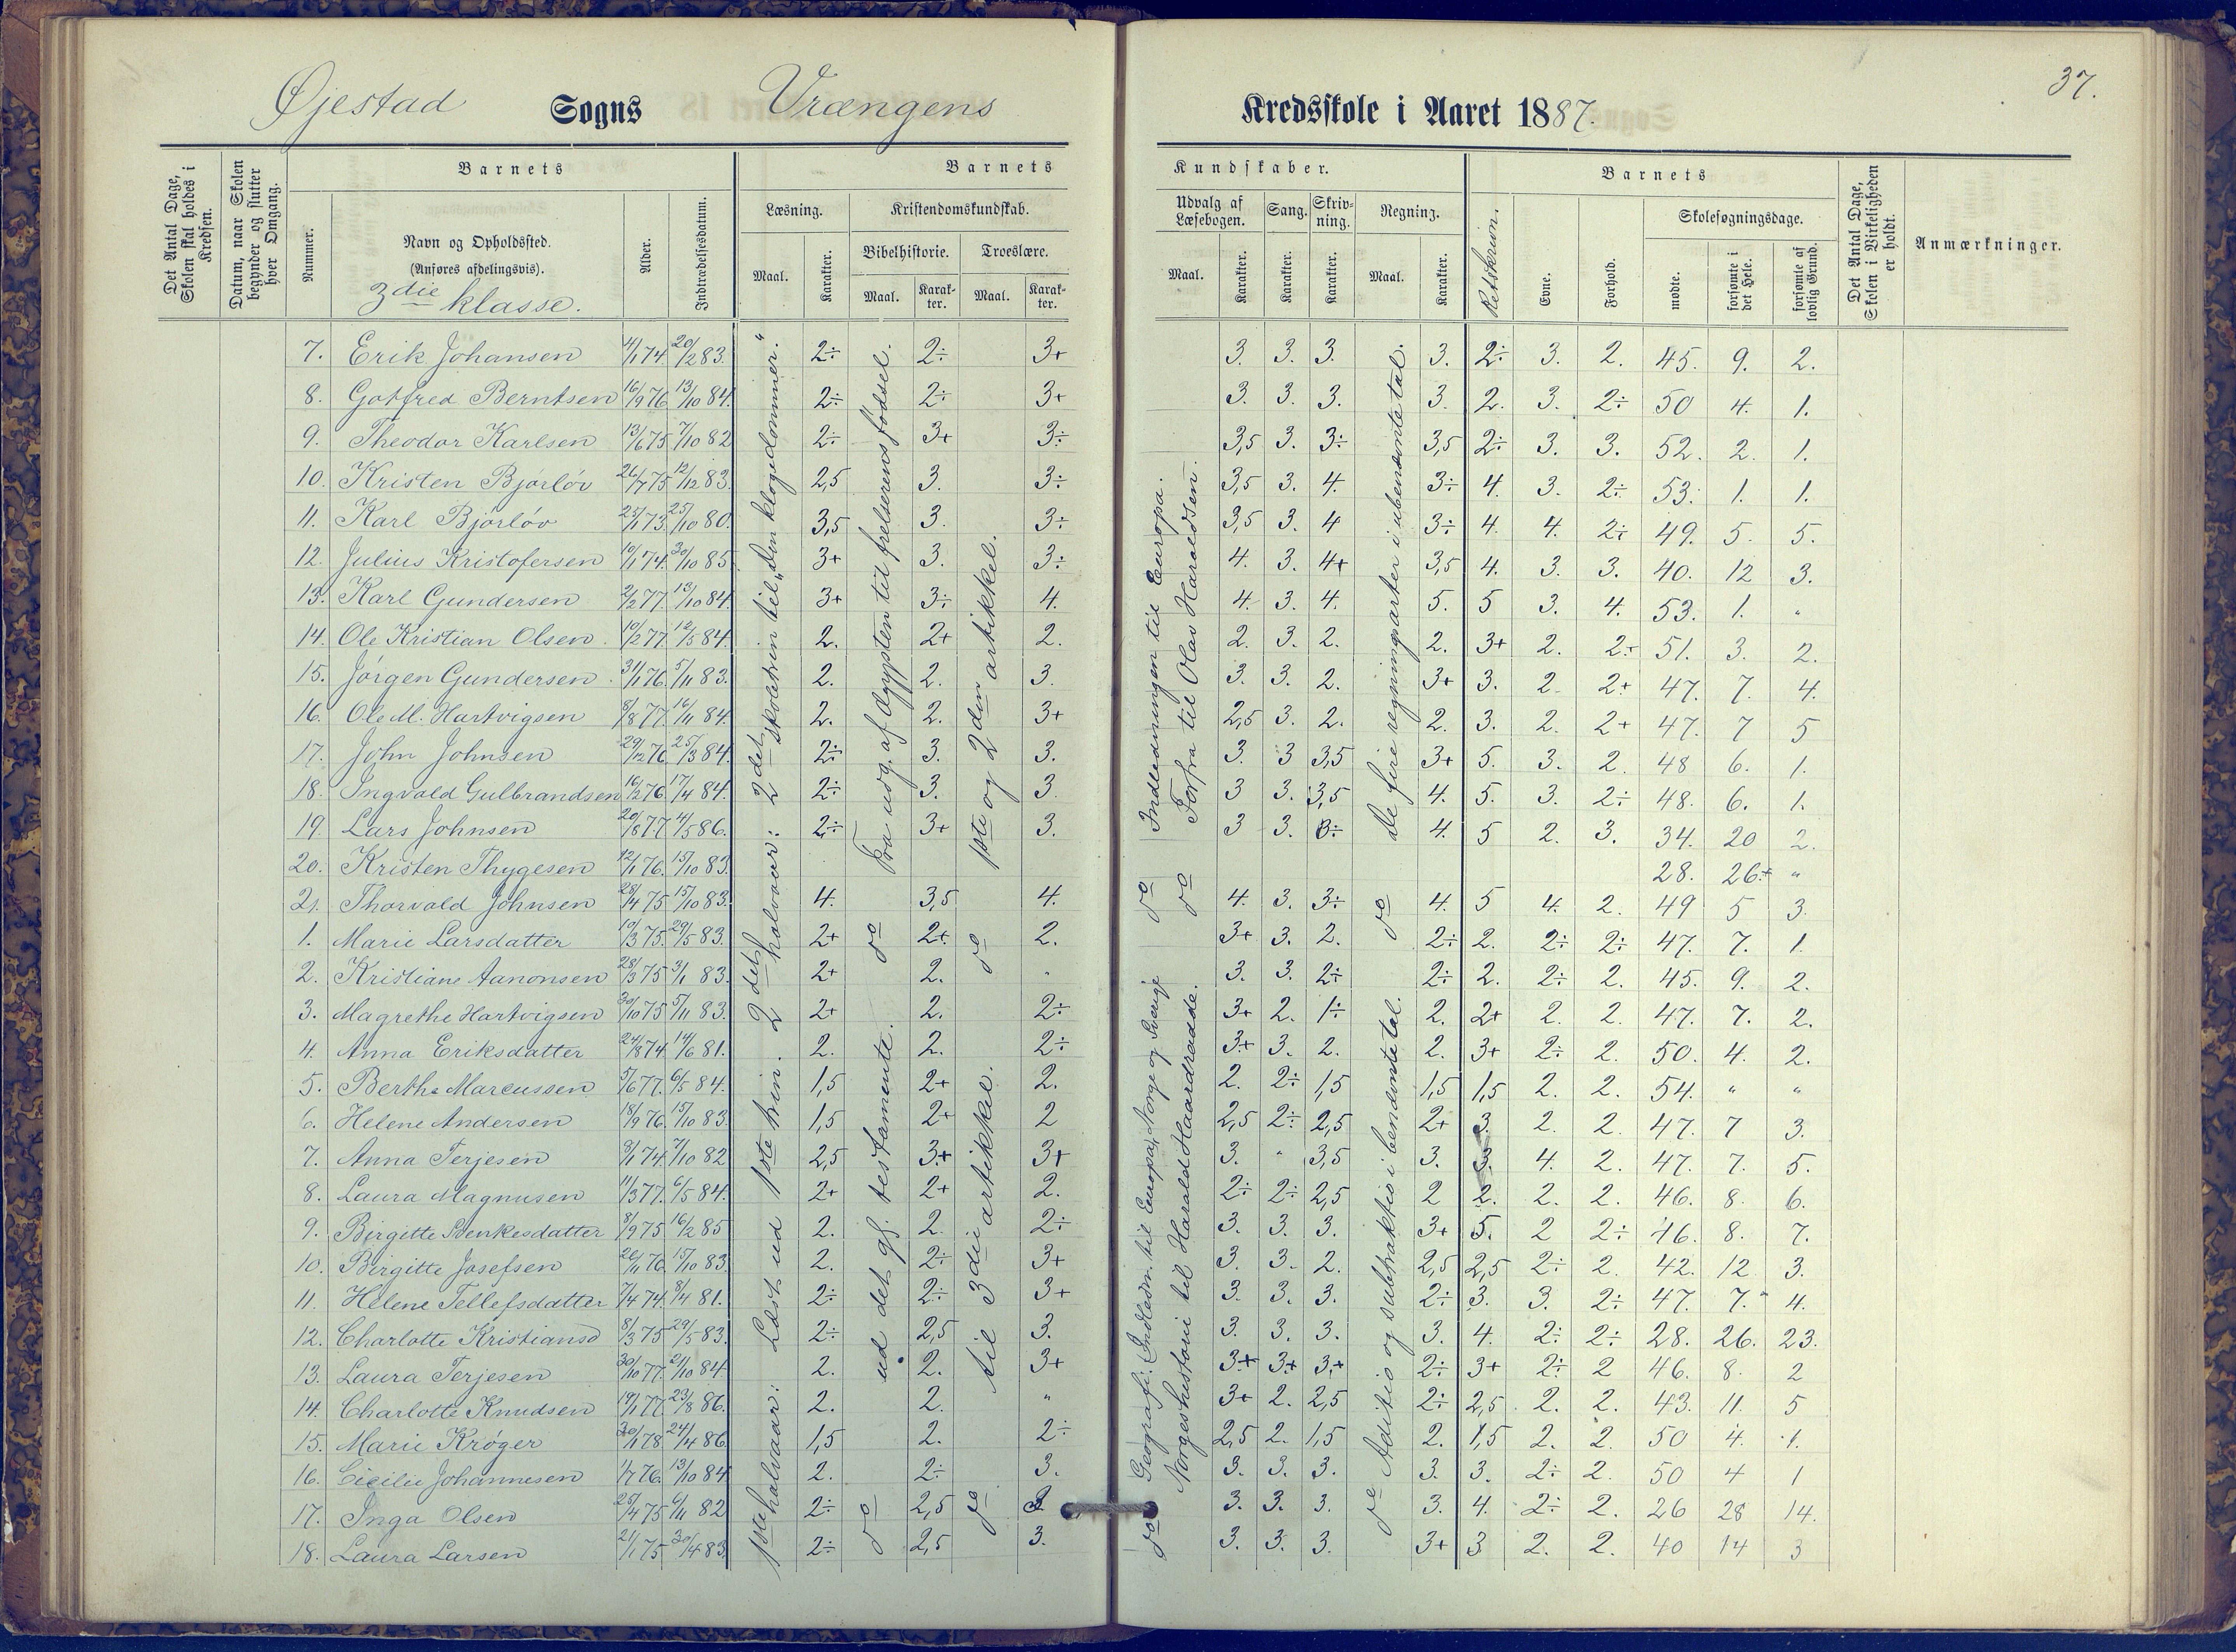 37.
Øjestad Sogns Vrængens Kredsskole i Aaret 1887.
Det Antal Dage, Skolen skal holdes i Kredsen.
Datum, naar Skolen begynder og slutter hver Omgang.
Barnets
Nummer.
Navn og Opholdssted.
(Anføres afdelingsvis).
3die klasse.
Alder.
Indtrædelsesdatum.
Barnets Kundskaber.
Læsning.
Maal.
Karakter.
Kristendomskundskab.
Bibelhistorie.
Maal.
Karakter.
Troeslære.
Maal.
Karakter.
Udvalg af Læsebogen.
Maal.
Karakter.
Sang.
Karakter.
Skrivning.
Karakter.
Regning.
Maal.
Karakter.
Retskrivn.
Barnets
Evne.
Forhold.
Skolesøgningsdage.
mødte.
forsømte i det Hele.
forsømte af lovlig Grund.
Det Antal Dage, Skolen i Virkeligheden er holdt.
Anmærkninger.
7. Erik Johansen 4/1 74. 20/2 83. 2÷ 2÷ 3+ 3. 3. 3. 3. 2÷ 3. 2. 45. 9. 2.
8. Gotfred Berntsen 16/9 76 13/10 84. 2÷ 2÷ 3+ 3. 3. 3. 3. 2. 3. 2÷ 50 4. 1.
9. Theodor Karlsen 13/6 75 7/10 82 2÷ 3+ 3÷ 3,5 3. 3÷ 3,5 2÷ 3. 3. 52. 2. 1.
10. Kristen Bjorløv 26/7 75 12/12 83. 2,5 3. 3÷ 3,5 3. 4. 3÷ 4. 3. 2÷ 53. 1. 1.
11. Karl Bjorløv 73. 25/10 80. 3,5 3. 3÷ 3,5 3. 4 3÷ 4. 4. 2÷ 49. 5. 5.
12. Julius Kristofersen 10/1 74. 30/10 85. 3+ 3. 3÷ 4. 3. 4+ 3,5 4. 3. 3. 40. 12 3.
13. Karl Gundersen 2/2 77. 13/10 84. 3+ 3÷ 4. 4. 3. 4. 5. 5 3. 4. 53. 1. "
14. Ole Kristian Olsen 10/2 77. 12/5 84. 2. 2+ 2. 2. 3. 2. 2. 3+ 2. 2÷ 51. 3. 2.
15. Jørgen Gundersen 31/1 76. 5/11 83. 2. 2. 3. 3. 3. 2. 3+ 3. 2. 2+ 47. 7. 4.
16. Ole M. Hartvigsen 8/8 77. 16/11 84. 2. 2. 3+ 2,5 3. 2. 2. 3. 2. 2+ 47. 7 5
17. John Johnsen 29/12 76. 25/3 84. 2÷ 3. 3. 3. 3 3,5 3+ 5. 3. 2. 48 6. 1.
18. Ingvald Gulbrandsen 16/2 76. 17/4 84. 2÷ 3. 3. 3 3. 3,5 4. 5. 3. 2÷ 48. 6. 1.
19. Lars Johnsen 20/8 77 4/5 86. 2÷ 3+ 3. 3 3. 3÷ 4. 5 2. 3. 34. 20 2.
20. Kristen Thygesen 12/1 76. 15/10 83. 28. 26+ "
21. Thorvald Johnsen 28/4 75 15/10 83. 4. 3,5 4. 4. 3. 3÷ 4. 5 4. 2. 49 5 3.
1. Marie Larsdatter 10/3 75. 29/5 83. 2+ 2+ 2. 3+ 3. 2. 2÷ 2. 2÷ 2÷ 47. 7. 1.
2. Kristiane Aanonsen 28/3 75 3/1 83. 2+ 2. " 3. 3. 2÷ 2÷ 2. 2÷ 2. 45. 9. 2.
3. Magrethe Hartvigsen 30/10 75 5/11 83. 2+ 2. 2÷ 3+ 2. 1÷ 2. 2+ 2. 2. 47. 7. 2.
4. Anna Eriksdatter 24/8 74. 14/6 81. 2. 2. 2÷ 3+ 3. 2. 2. 3+ 2÷ 2. 50. 4. 2.
5. Berthe Marcussen 5/6 77. 6/5 84. 1,5 2+ 2. 2. 2÷ 1,5 1,5 1,5 2. 2. 54. " "
6. Helene Andersen 18/9 76. 15/10 83. 1,5 2+ 2 2,5 2÷ 2,5 2+ 3. 2. 2. 47. 7 3.
7. Anna Terjesen 3/1 74. 7/10 82 2,5 3+ 3+ 3. " 3,5 3. 3. 4. 2. 47. 7. 5.
8. Laura Magnusen 11/3 77. 6/5 84. 2+ 2+ 2. 2÷ 2÷ 2,5 2 2. 2. 2. 46. 8. 6.
9. Birgitte Svenkesdatter 8/9 75 16/2 85 2. 2. 2÷ 3. 3. 3. 3+ 5. 2 2÷ 46. 8. 7.
10. Birgitte Josefsen 20/11 76. 15/10 83. 2. 2÷ 3+ 3. 3. 2. 2,5 2,5 2÷ 2. 42. 12 3.
11. Helene Tellefsdatter 7/4 74. 8/4 81. 2÷ 2÷ 3+ 3. 3. 3. 2÷ 3. 3. 2÷ 47. 7. 4.
12. Charlotte Kristiansd 8/3 75 29/5 83. 2÷ 2,5 3. 3. 3. 3. 3. 4. 2÷ 2÷ 28. 26. 23.
13. Laura Terjesen 30/10 77. 2/10 84. 2. 2. 3+ 3+ 3+ 3+ 2÷ 3+ 2÷ 2 46. 8. 2
14. Charlotte Knudsen 19/1 77 23/8 86. 2. 2. " 3+ 2. 2,5 2÷ 2,5 2. 2. 43. 11. 5
15. Marie Krøger 30/1 78. 24/4 86. 1,5 2. 2÷ 2,5 2. 1,5 2. 1,5 2. 2. 50 4. 1.
16. Cicilie Johannesen 1/7 76. 13/10 84 2. 2÷ 3. 3. 3. 3. 3. 3. 2÷ 2. 50 4 1
17. Inga Olsen 25/4 75 6/11 82 2÷ 2,5 3. 3. 3. 3. 3. 4. 2÷ 2. 26 28 14.
18. Laura Larsen 21/1 75 30/4 83. 2÷ 2,5 3. 3. 3. 3. 3+ 3 2. 2. 40 14 3
1ste halvaar: Læst ud 1ste trin. 2det halvaar: 2det skoletrin til „Den kloge dommer."
Fra udg. af Ægypten til frelserens fødsel.
do
ud det gl. testamente.
do
1ste og 2den artikkel.
do
til 3die artikkel.
do
Indledningen til Europa.
Forfra til Olav Haraldsen.
do do
Geografi: Indledn. til Europa, Norge og Sverige
Norgeshistorie til Harald Haardraade.
do
De fire regningsarter i ubenævnte tal.
do
Aditio og subtraktio i benævnte tal.
do